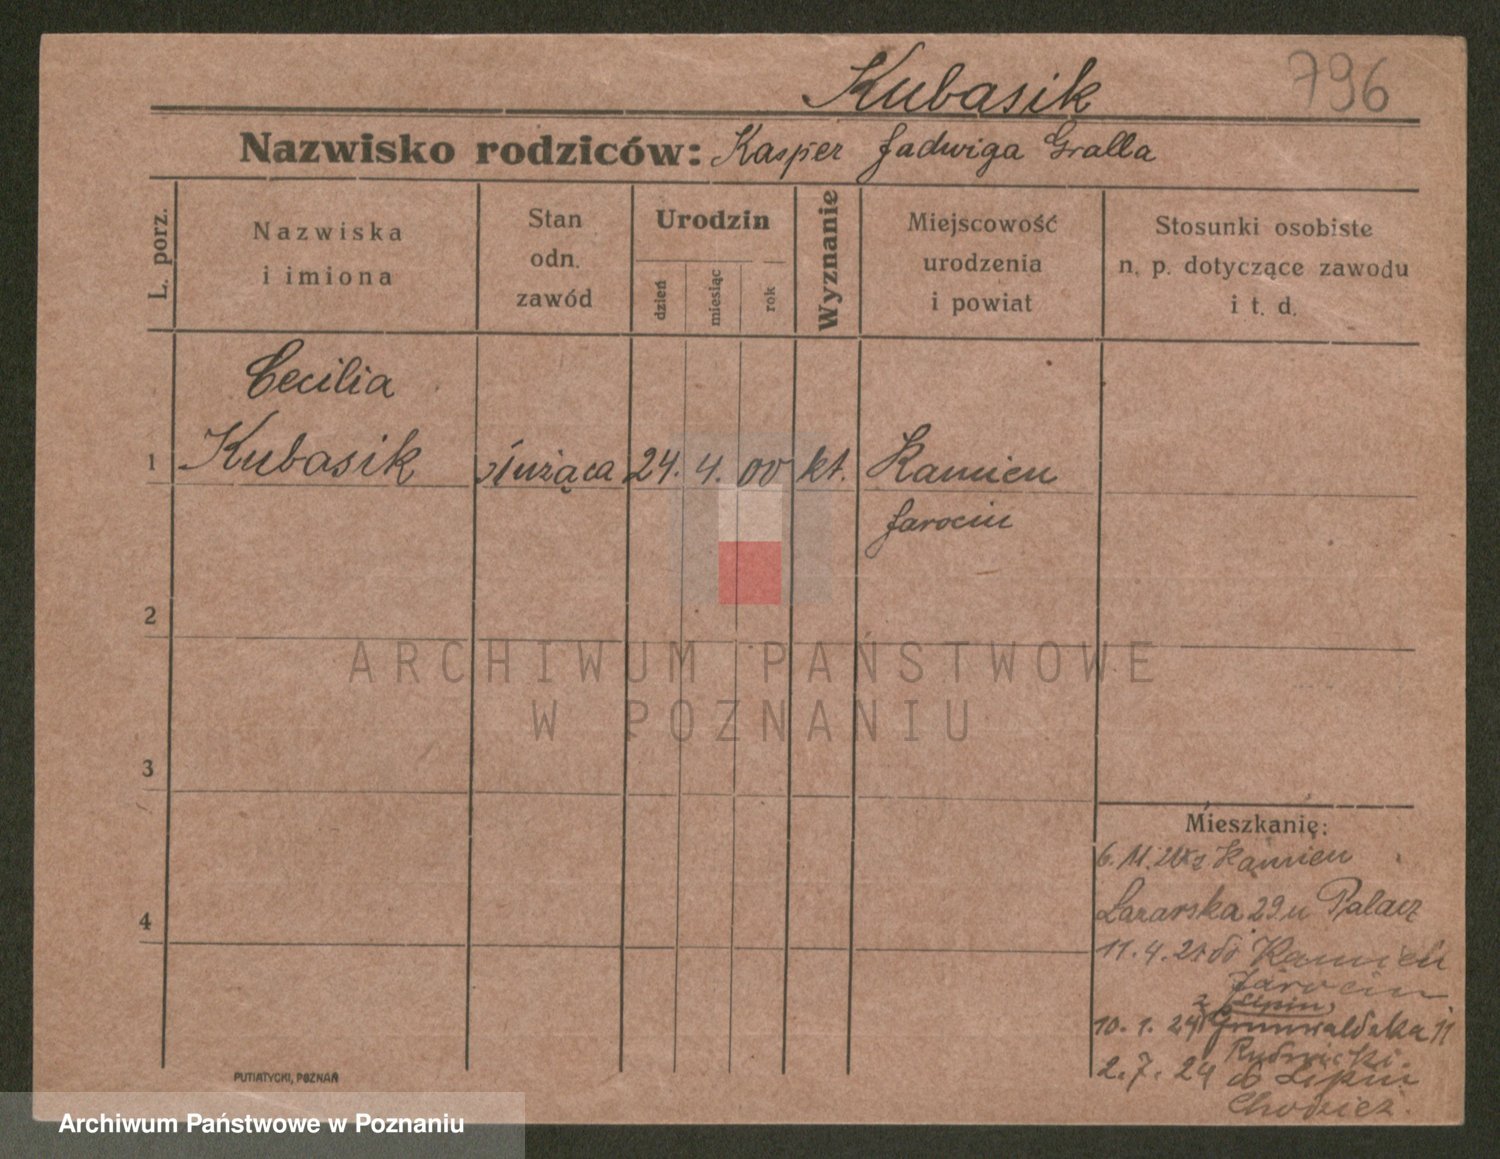 Kubasik
796
Nazwisko rodziców: Kasper Jadwiga Gralla
L. porz.
Nazwiska
i imiona
Stan
odn.
zawód
Urodzin
dzień
miesiąc
rok
Wyznanie
Miejscowość
urodzenia
i powiat
Stosunki osobiste
n. p. dotyczące zawodu
i t. d.
Cecilia
1 Kubasik służąca 24. 4. 00 kt. Kamien
Jarocin
2
3
4
ARCHIWUM PAŃSTWOWE
W POZNANIU
Mieszkanie:
6. 11. z Kamien
Łazarska 29 u Palacz
11. 4. 21 do Kamien
Jarocin
z Lipin
10. 1. 24 Grunwaldska 11
Rudnicki
2. 7. 24 do Lipin
Chodzież.
PUTIATYCKI, POZNAŃ
Archiwum Państwowe w Poznaniu